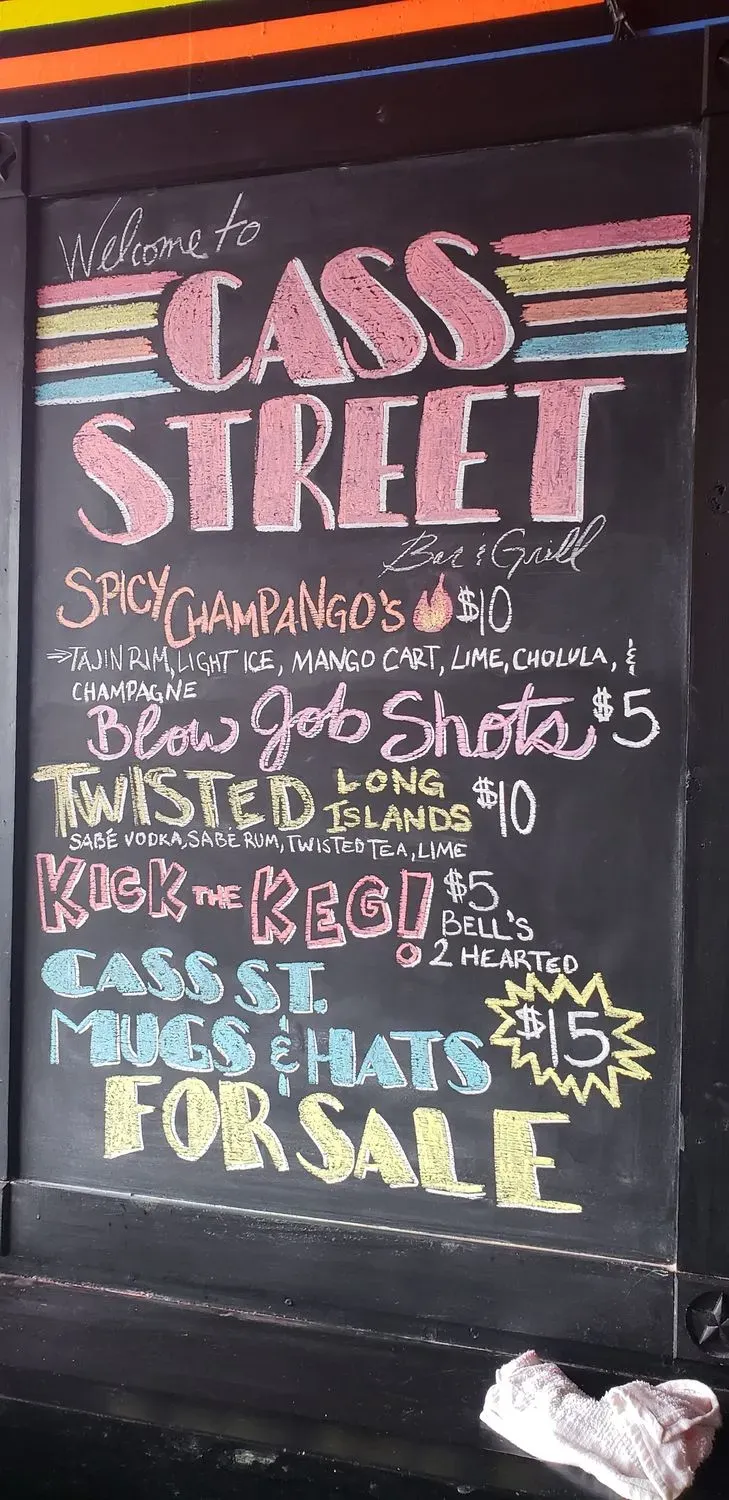 Welcome to
CASS
STREET
Bar & Grill
SPICY CHAMPANGO'S $10
→TAJIN RIM, LIGHT ICE, MANGO CART, LIME, CHOLULA, &
CHAMPAGNE
Blow Job Shots $5
TWISTED LONG ISLANDS $10
SABÉ VODKA, SABÉ RUM, TWISTED TEA, LIME
KICK THE KEG! $5
BELL'S
2 HEARTED
CASS ST.
MUGS & HATS $15
FOR SALE